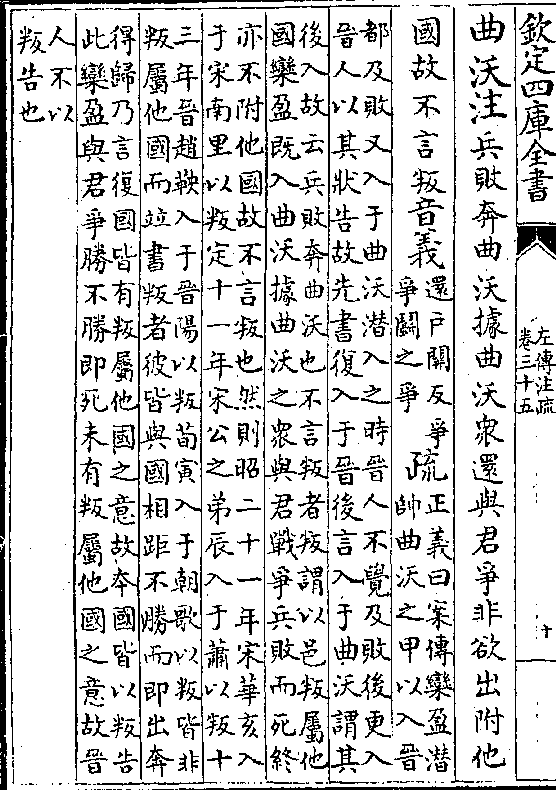 欽定四庫全書
左傳注疏
卷三十五
十
曲沃注兵敗奔曲沃據曲沃衆還與君爭非欲出附他
國故不言叛音義
還戶關反爭
爭鬭之爭
疏
正義曰案傳欒盈潛
帥曲沃之甲以入晉
都及敗又入于曲沃潛入之時晉人不覺及敗後更入
晉人以其狀告故先書復入于晉後言入于曲沃謂其
後入故云兵敗奔曲沃也不言叛者叛謂以邑叛屬他
國欒盈既入曲沃據曲沃之衆與君戰爭兵敗而死終
亦不附他國故不言叛也然則昭二十一年宋華亥入
于宋南里以叛定十一年宋公之弟辰入于蕭以叛十
三年晉趙鞅入于晉陽以叛荀寅入于朝歌以叛皆非
叛屬他國而竝書叛者彼皆與國相距不勝而即出奔
得歸乃言復國皆有叛屬他國之意故本國皆以叛告
此欒盈與君爭勝不勝即死未有叛屬他國之意故晉
人不以
叛告也